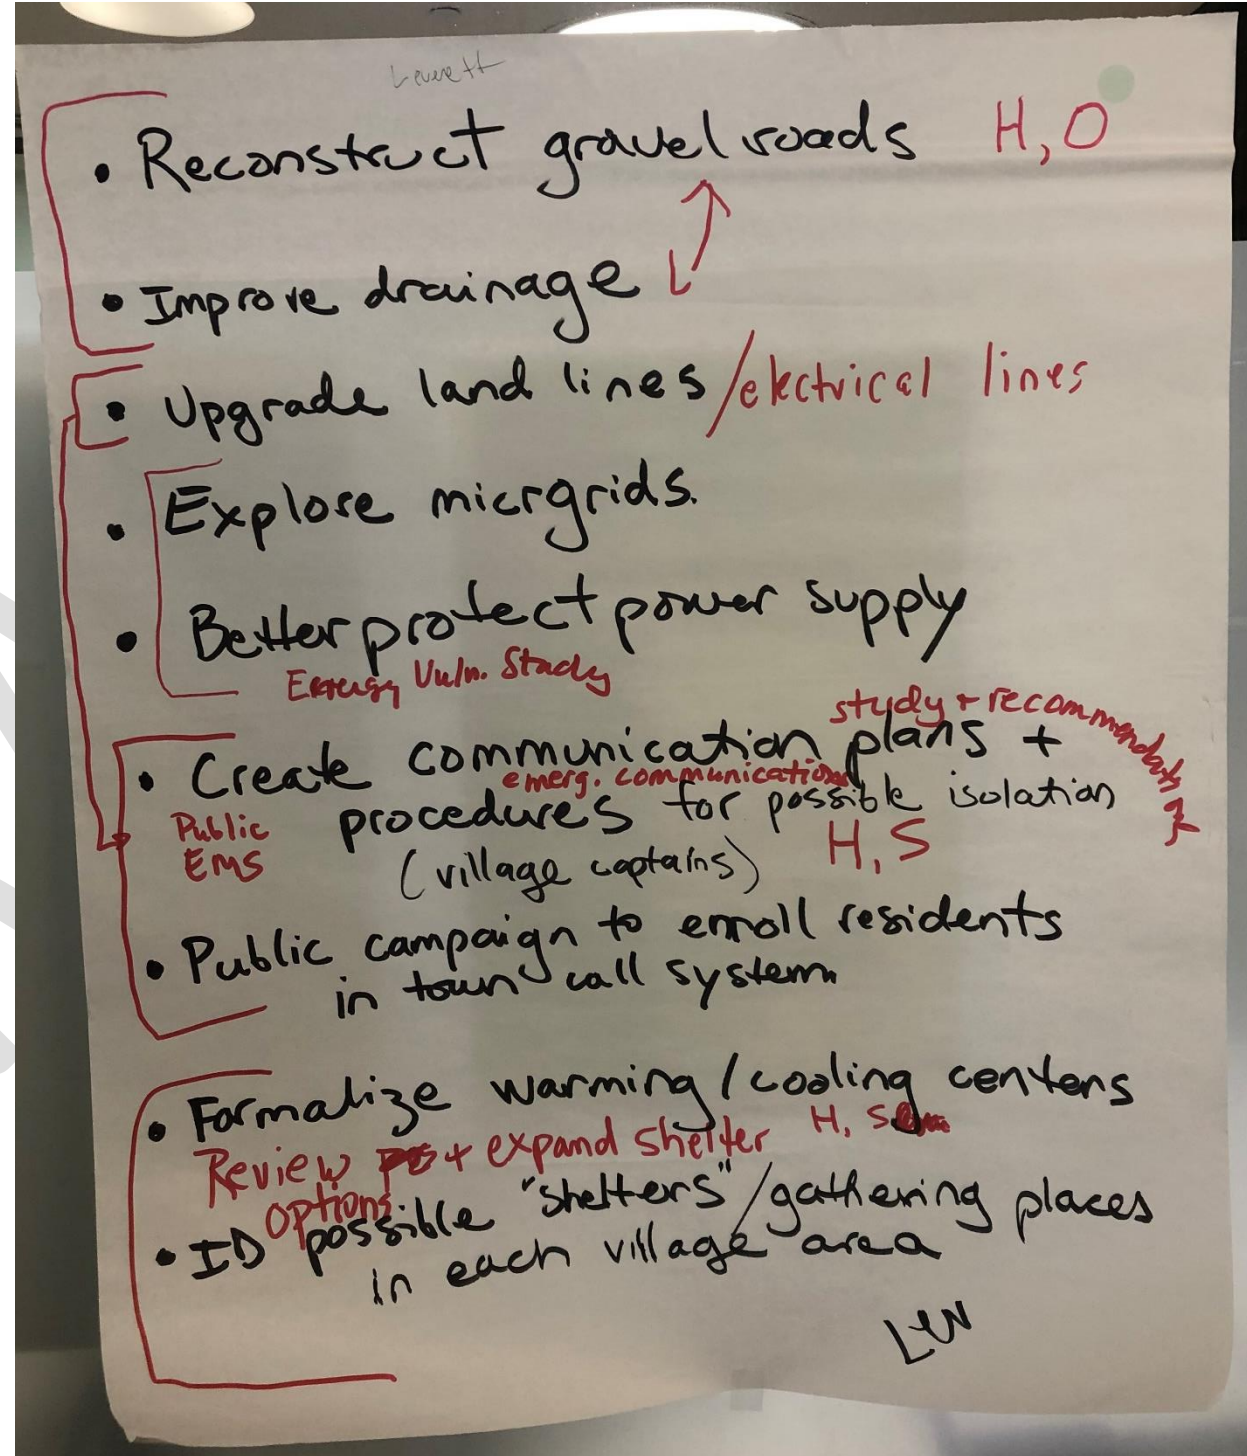 Leverett
• Reconstruct gravel roads H, O
• Improve drainage
• Upgrade land lines / electrical lines
• Explore micrgrids.
• Better protect power supply
Energy Vuln. Study
study + recommendats of
• Create communication plans +
emerg. communications
procedures for possible isolation
Public
EMS
(village captains) H, S
• Public campaign to enroll residents
in town call system
• Formalize warming / cooling centers
Review + expand shelter H, S
options
• ID possible "shelters" / gathering places
in each village area
Lev